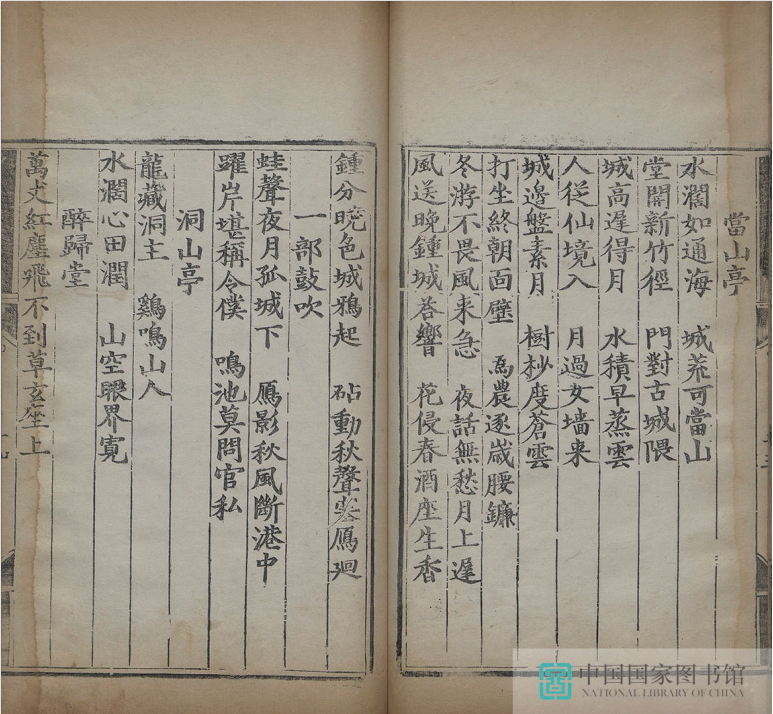 當山亭
水濶如通海　城荒可當山
堂開新竹徑　門對古城隈
城高遲得月　水積早蒸雲
人從仙境入　月過女墻来
城邉盤素月　樹杪度蒼雲
打坐終朝面壁　爲農逐歳腰鐮
冬游不畏風来急　夜話無愁月上遲
風送晚鍾城荅響　花侵春酒座生香
鍾分曉色城鴉起　砧動秋聲塞鴈廻
一部鼓吹
蛙聲夜月孤城下　鴈影秋風斷港中
躍岸堪稱令僕　鳴池莫問官私
洞山亭
龍藏洞主　鷄鳴山人
水濶心田潤　山空眼界寛
醉歸堂
萬丈紅塵飛不到草玄坐上
中国国家图书馆
NATIONAL LIBRARY OF CHINA